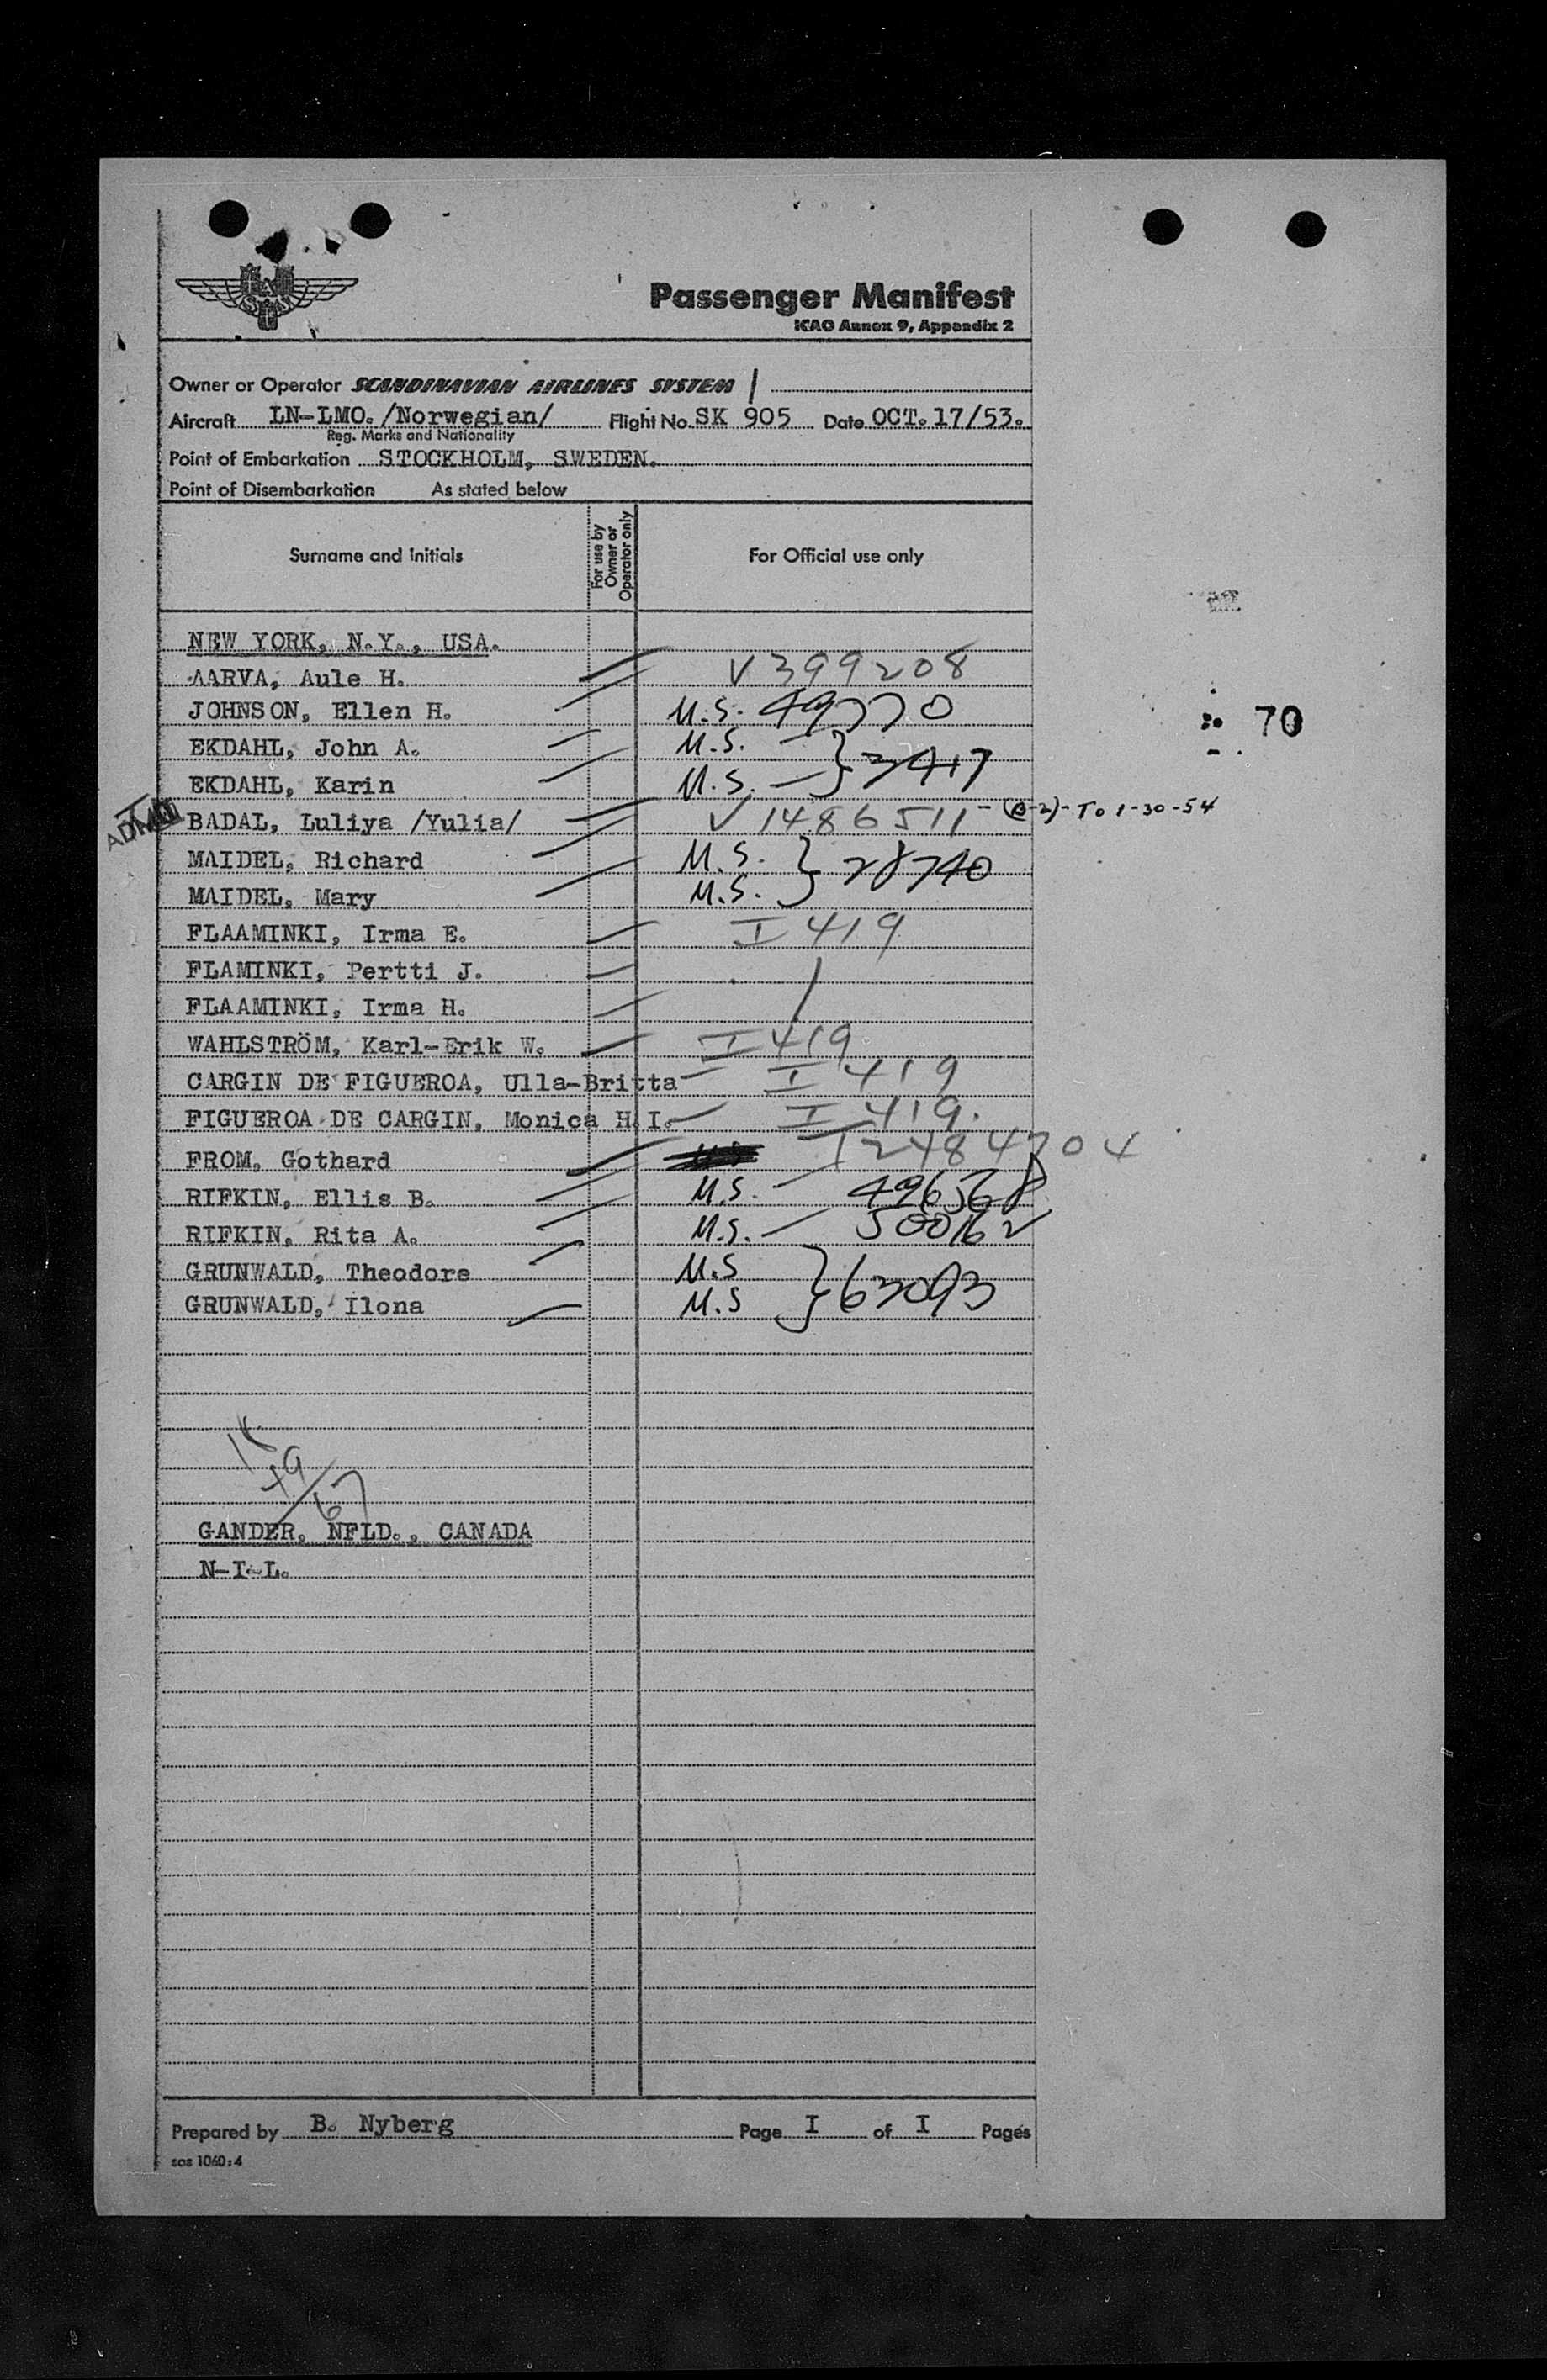 Passenger Manifest
ICAO Annex 9, Appendix 2
Owner or Operator SCANDINAVIAN AIRLINES SYSTEM
Aircraft LN-LMO. /Norwegian/ Flight No. SK 905 Date OCT. 17/53.
Reg. Marks and Nationality
Point of Embarkation STOCKHOLM, SWEDEN.
Point of Disembarkation As stated below
Surname and Initials For use by Owner or Operator only For Official use only
NEW YORK, N.Y., USA.
AARVA, Aule H. V399208
JOHNSON, Ellen H. U.S. 49770
70
EKDAHL, John A. U.S.
EKDAHL, Karin U.S. 3417
BADAL, Luliya /Yulia/ V1486511 - (B-2) - To 1-30-54
MAIDEL, Richard U.S. 28740
MAIDEL, Mary U.S.
FLAAMINKI, Irma E. I 419
FLAMINKI, Pertti J.
FLAAMINKI, Irma H.
WAHLSTRÖM, Karl-Erik W. I 419
CARGIN DE FIGUEROA, Ulla-Britta I 419
FIGUEROA DE CARGIN, Monica H.I. I 419.
FROM, Gothard
RIFKIN, Ellis B. U.S. 496568
RIFKIN, Rita A. U.S. 500162
GRUNWALD, Theodore U.S
GRUNWALD, Ilona U.S 63093
18
49
67
GANDER, NFLD., CANADA
N-I-L.
Prepared by B. Nyberg Page I of I Pages
sas 1060:4